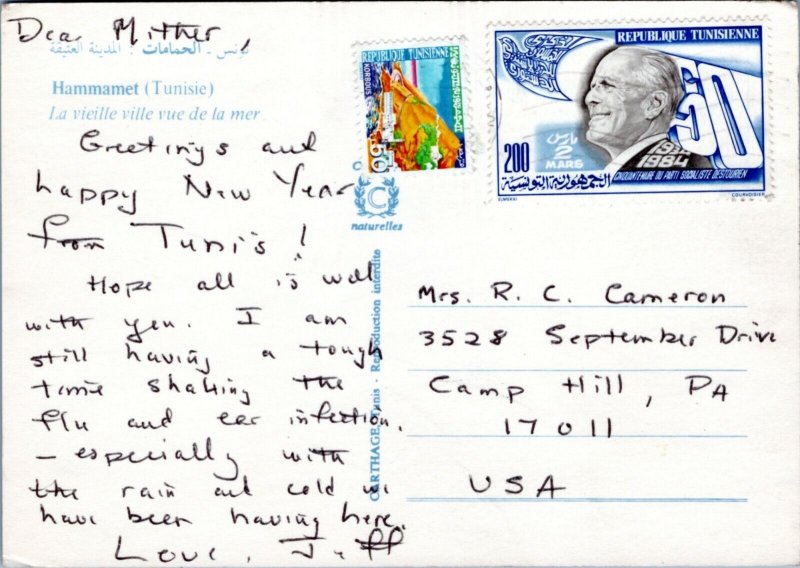 Dear Mother,
تونس - الحمامات : المدينة العتيقة
Hammamet (Tunisie)
La vieille ville vue de la mer
Greetings and
happy New Year
from Tunis!
Hope all is well
with you. I am
still having a tough
time shaking the
flu and ear infection.
- especially with
the rain and cold we
have been having here.
Love, Jeff
REPUBLIQUE TUNISIENNE
KORBOUS
REPUBLIQUE TUNISIENNE
50
200
2 مارس
MARS
1984
CINQUANTENAIRE DU PARTI SOCIALISTE DESTOURIEN
الجمهورية التونسية
ELMEKKI
COURVOISIER
C
naturelles
CARTHAGE, Tunis - Reproduction interdite
Mrs. R. C. Cameron
3528 September Drive
Camp Hill, PA
17011
USA